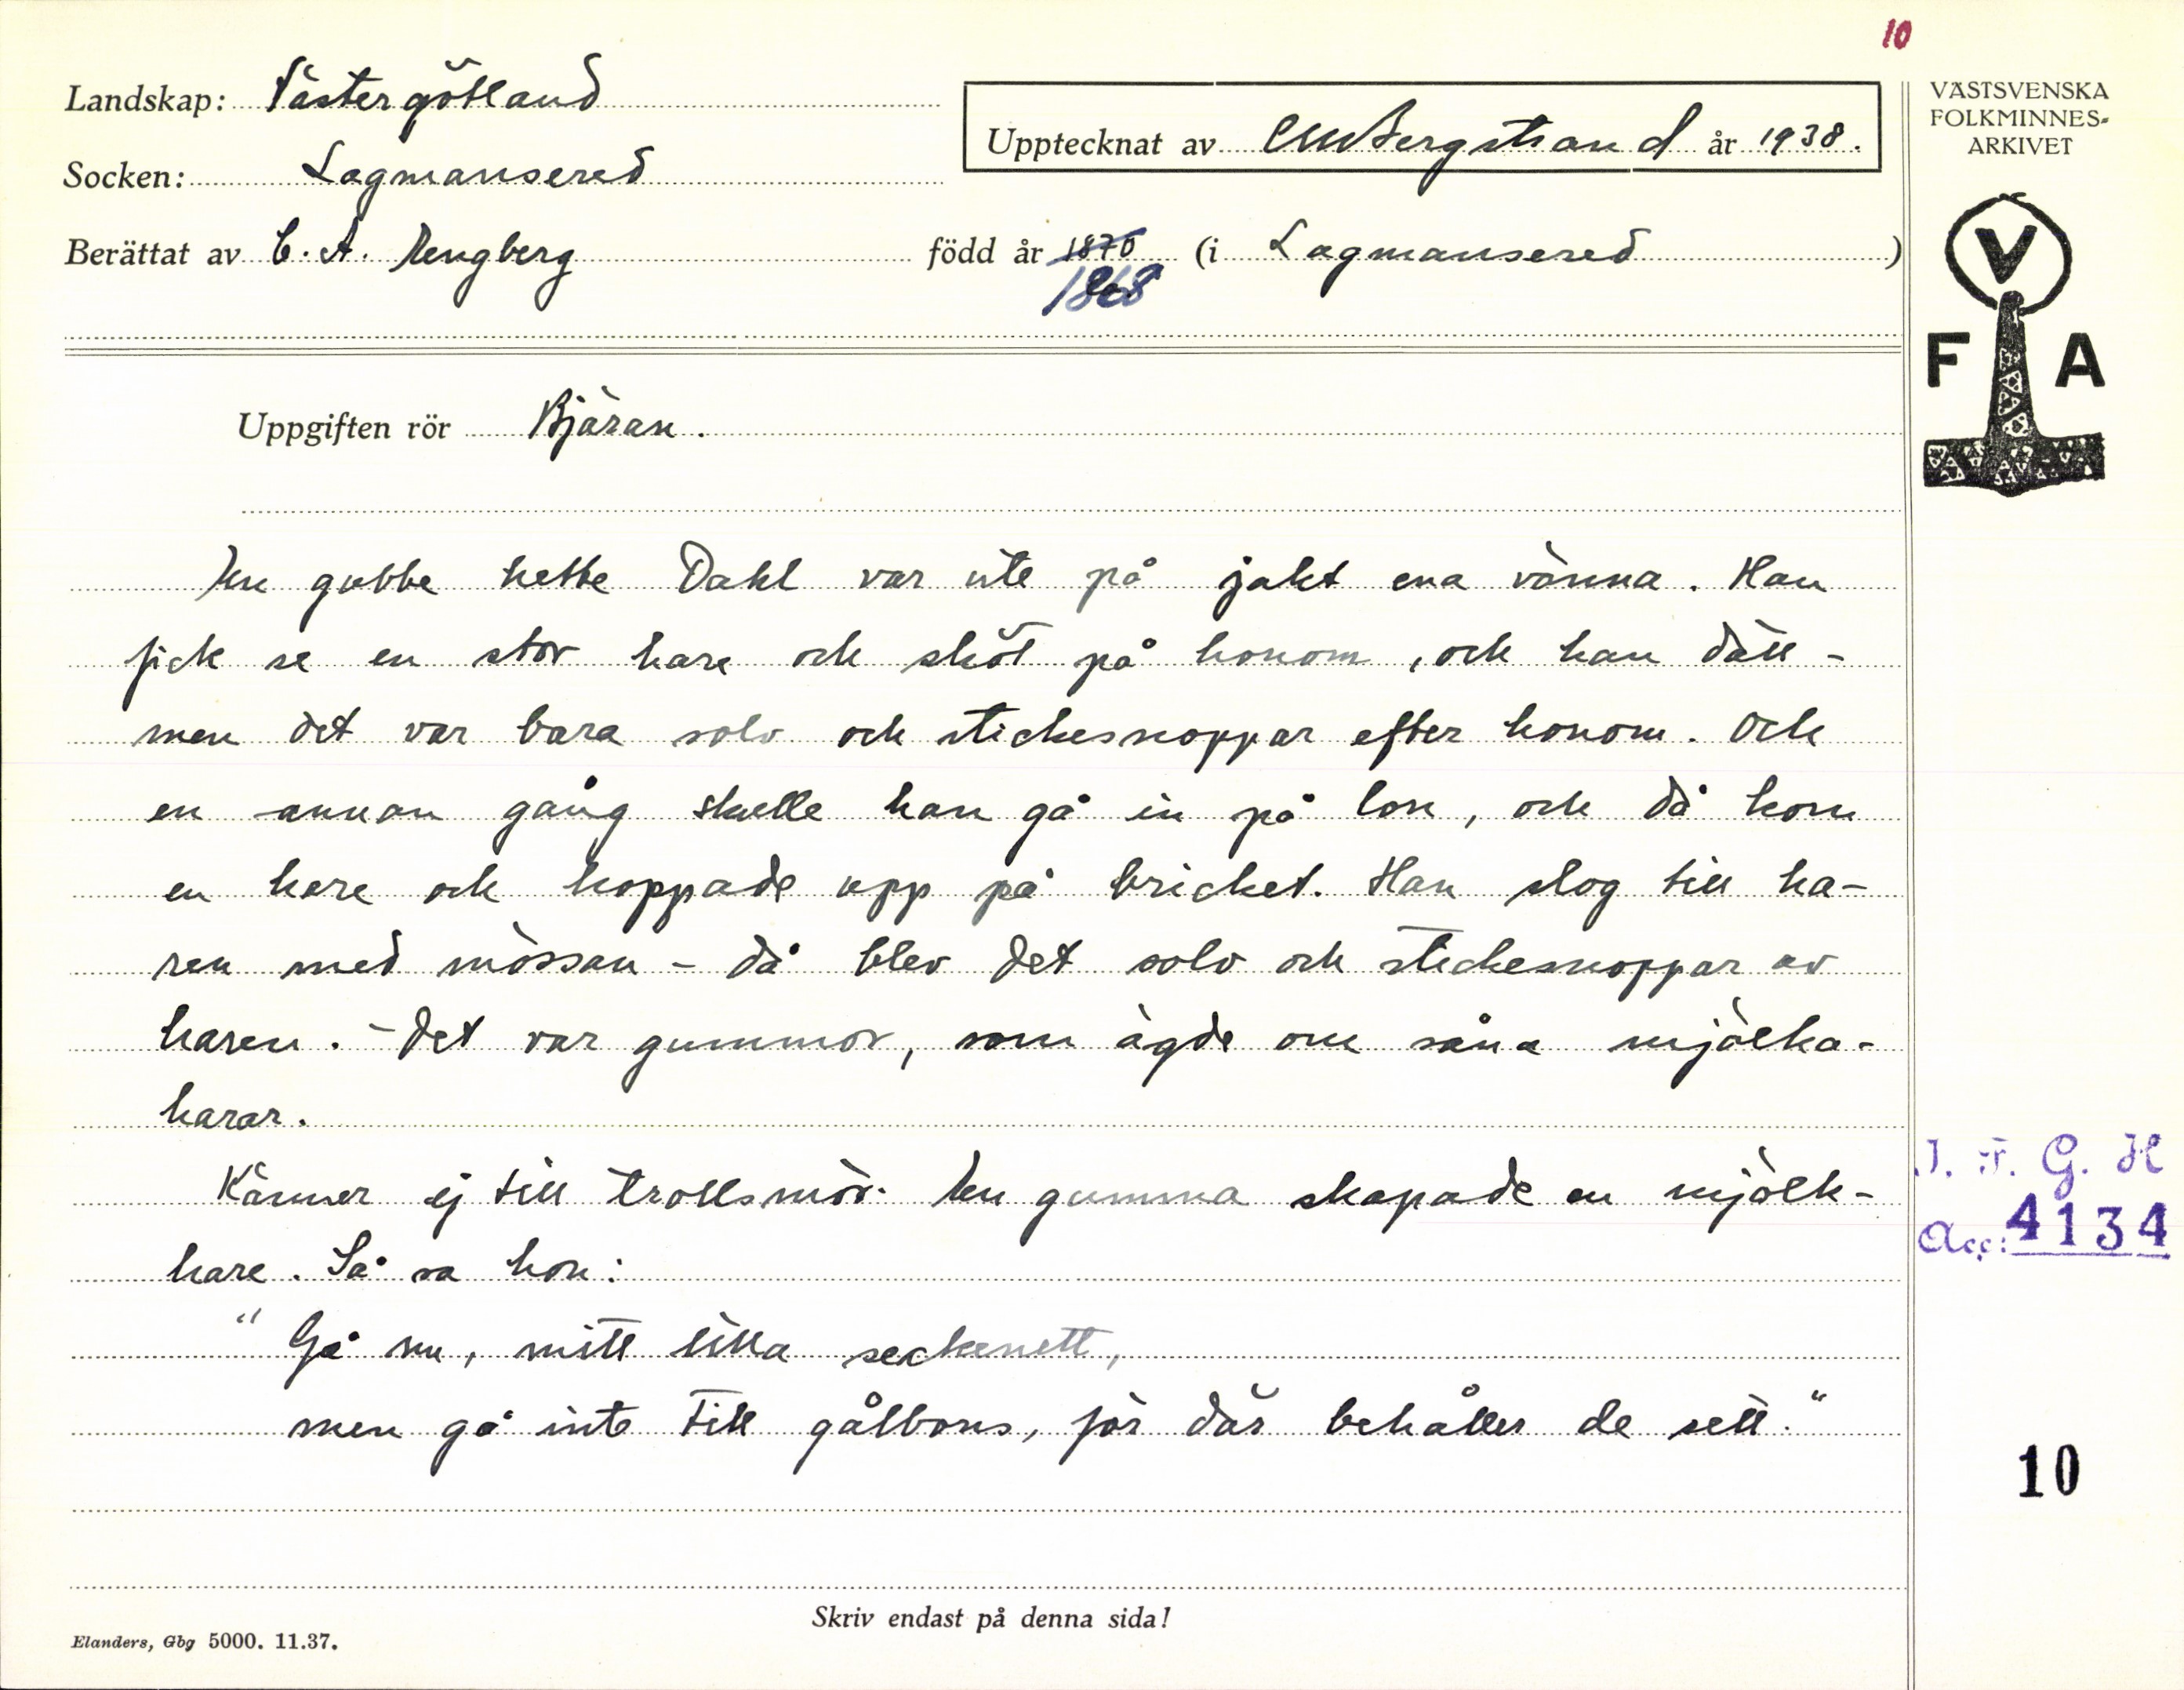 10
Landskap: Västergötland
Upptecknat av CMBergstrand år 1938.
VÄSTSVENSKA
FOLKMINNES-
ARKIVET
Socken: Lagmansered
Berättat av C. A. Engberg född år 1870 (i Lagmansered)
1868
V
F A
Uppgiften rör Bjäran.
En gubbe hette Dahl var ute på jakt ena vänna. Han
fick se en stor hare och sköt på honom, och han däll -
men det var bara solv och stickesnoppar efter honom. Och
en annan gång skulle han gå in på lon, och då kom
en hare och hoppade upp på bricket. Han slog till ha-
ren med mössan - då blev det solv och stickesnoppar av
haren. - Det var gummor, som ägde om såna mjölka-
harar.
Känner ej till trollsmör. En gumma skapade en mjölk-
hare. Så sa hon:
" Gå nu, mitt lilla seckenett,
men gå inte till gålbons, för där behåller de sett."
I. F. G. H
Acc: 4134
10
Skriv endast på denna sida!
Elanders, Gbg 5000. 11.37.